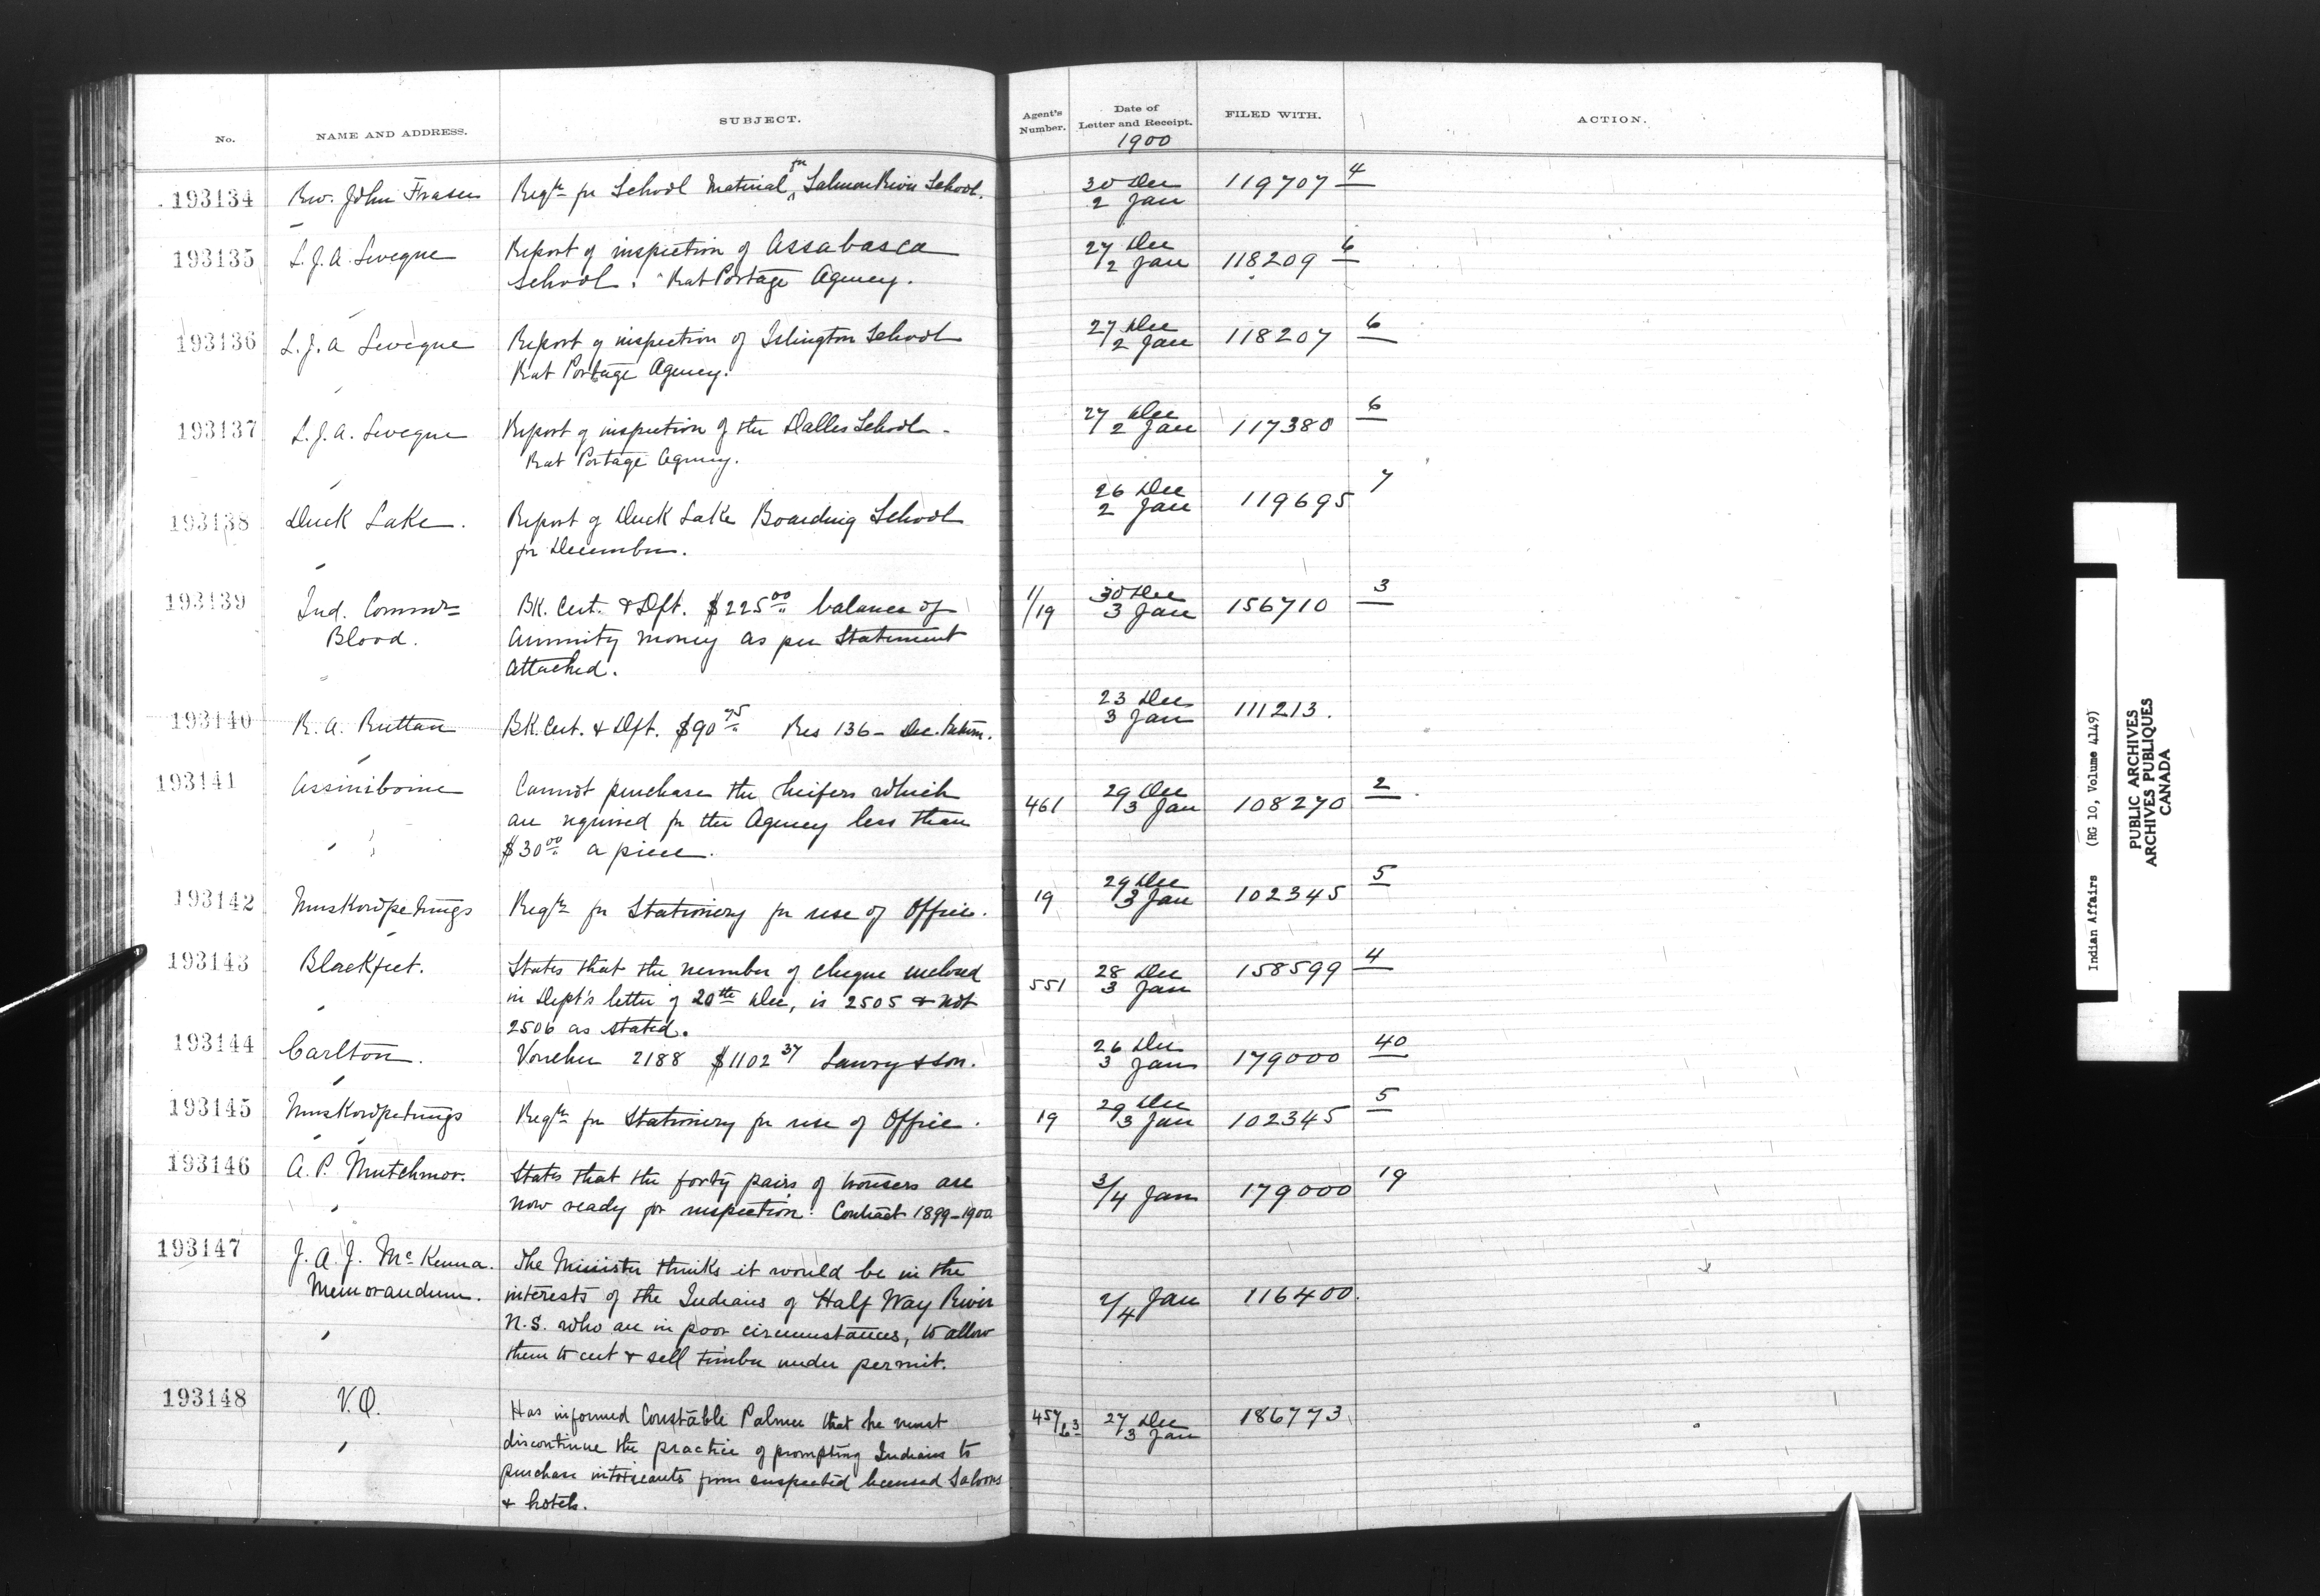 No.
NAME AND ADDRESS.
SUBJECT.
Agent's Number.
Date of Letter and Receipt.
1900
FILED WITH.
ACTION.
193134 Rev. John Fraser Reqtn for School Material for Salmon River School. 30 Dec 119707 4
2 Jan
193135 L.J.A. Leveque Report of inspection of Assabasca 27 Dec 118209 6
School. Rat Portage Agency. 2 Jan
193136 L.J.A Leveque Report of inspection of Islington School 27 Dec 118207 6
Rat Portage Agency. 2 Jan
193137 L.J.A. Leveque Report of inspection of the Dalles School. 27 Dec 117380 6
Rat Portage Agency. 2 Jan
193138 Duck Lake. Report of Duck Lake Boarding School 26 Dec 119695 7
for December. 2 Jan
193139 Ind. Commr BK. Cert. & Dft. $225.00 balance of 1/19 30 Dec 156710 3
Blood. Annuity money as per Statement 3 Jan
attached.
193140 R. A. Ruttan BK. Cert. & Dft. $90.75 Res 136 - Dec. Return. 23 Dec 111213.
3 Jan
193141 Assiniboine Cannot purchase the heifers which 461 29 Dec 108270 2
are required for the Agency less than 3 Jan
$30.00 a piece.
193142 Muskowpetungs Reqtn for Stationery for use of Office. 19 29 Dec 102345 5
3 Jan
193143 Blackfeet. States that the number of cheque enclosed 551 28 Dec 158599 4
in Dept's letter of 20th Dec, is 2505 & not 3 Jan
2506 as stated.
193144 Carlton. Voucher 2188 $1102.37 Lawry & Son. 26 Dec 179000 40
3 Jan
193145 Muskowpetungs Reqtn for Stationery for use of Office. 19 29 Dec 102345 5
3 Jan
193146 A. P. Mutchmor. States that the forty pairs of trousers are 3/4 Jan 179000 19
now ready for inspection. Contract 1899-1900
193147 J. A. J. McKenna. The Minister thinks it would be in the 2/4 Jan 116400.
Memorandum. interests of the Indians of Half Way River
N.S. who are in poor circumstances, to allow
them to cut & sell timber under permit.
193148 V.O. Has informed Constable Palmer that he must 457/63 27 Dec 186773
discontinue the practice of prompting Indians to 3 Jan
purchase intoxicants from suspected licensed Saloons
& hotels.
Indian Affairs (RG 10, Volume 4149)
PUBLIC ARCHIVES
ARCHIVES PUBLIQUES
CANADA